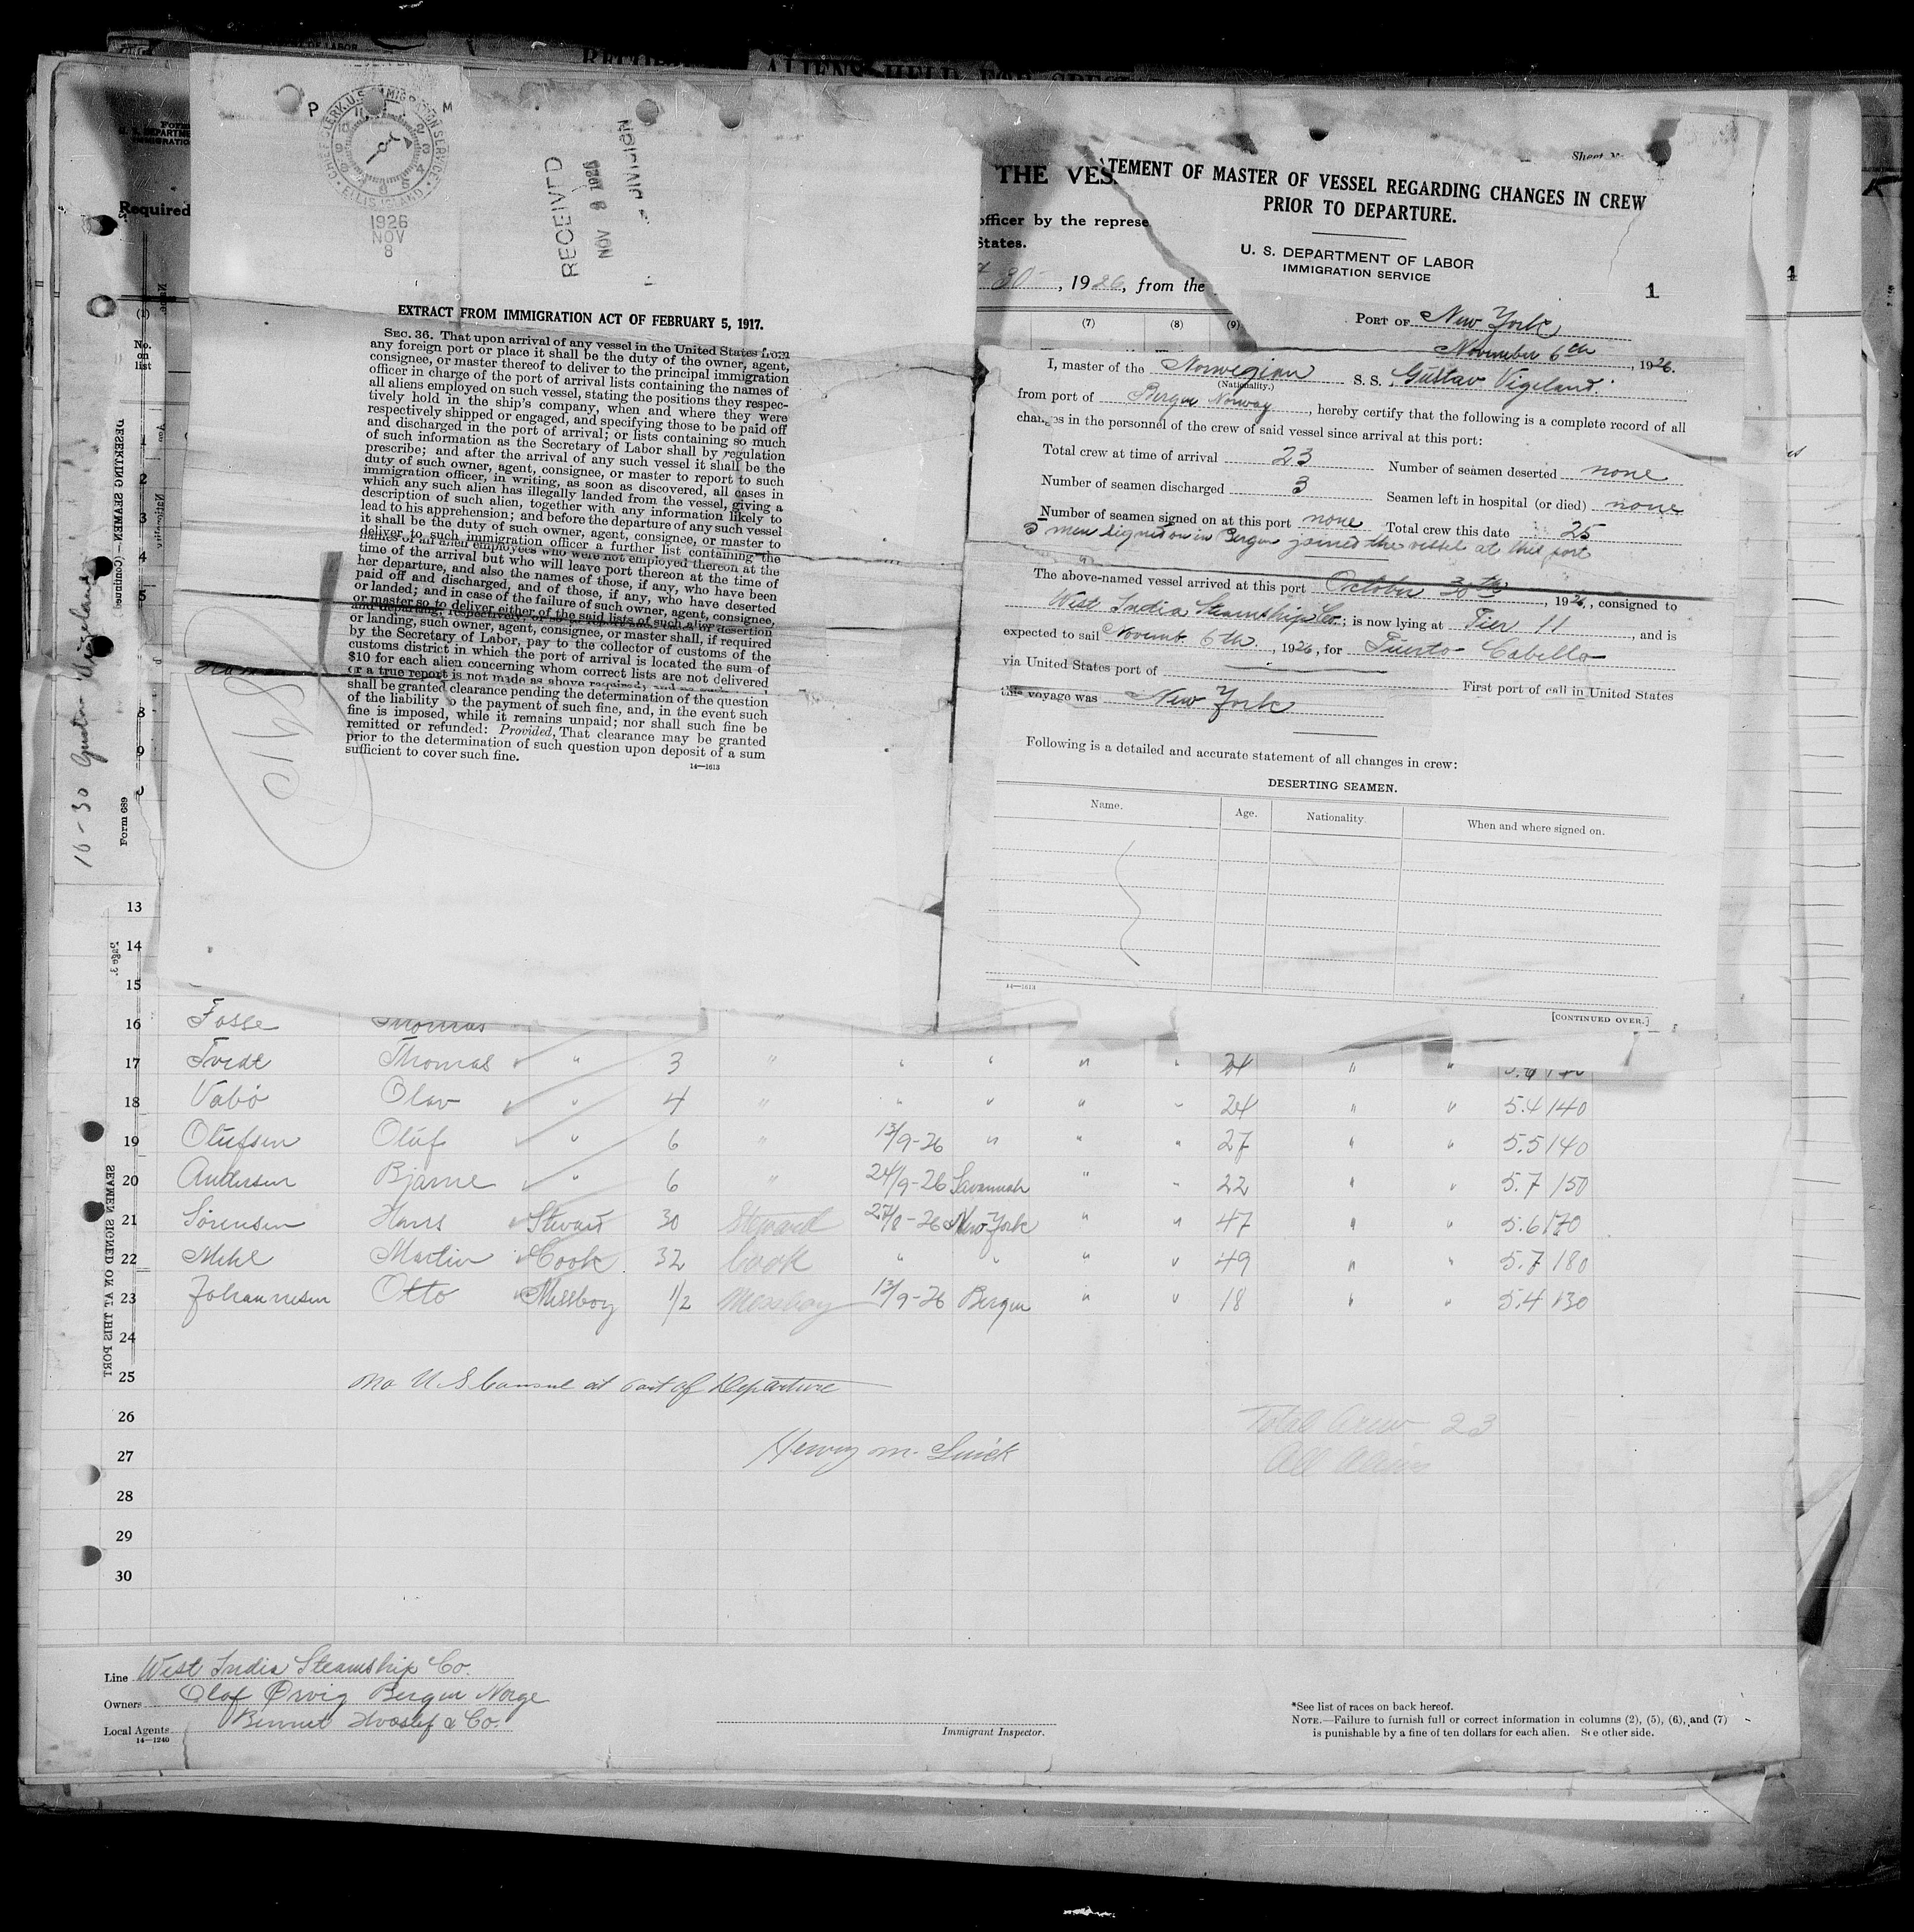 RECORD ALIENS HELD FOR SPECI
P M
CHIEF CLERK, U.S. IMMIGRATION SERVICE
ELLIS ISLAND
1926
NOV
8
RECEIVED
NOV 8 1926
DIVISION
Required
EXTRACT FROM IMMIGRATION ACT OF FEBRUARY 5, 1917.
SEC. 36. That upon arrival of any vessel in the United States from
any foreign port or place it shall be the duty of the owner, agent,
consignee, or master thereof to deliver to the principal immigration
officer in charge of the port of arrival lists containing the names of
all aliens employed on such vessel, stating the positions they respec-
tively hold in the ship's company, when and where they were
respectively shipped or engaged, and specifying those to be paid off
and discharged in the port of arrival; or lists containing so much
of such information as the Secretary of Labor shall by regulation
prescribe; and after the arrival of any such vessel it shall be the
duty of such owner, agent, consignee, or master to report to such
immigration officer, in writing, as soon as discovered, all cases in
which any such alien has illegally landed from the vessel, giving a
description of such alien, together with any information likely to
lead to his apprehension; and before the departure of any such vessel
it shall be the duty of such owner, agent, consignee, or master to
deliver to such immigration officer a further list containing the
names of all alien employees who were not employed thereon at the
time of the arrival but who will leave port thereon at the time of
her departure, and also the names of those, if any, who have been
paid off and discharged, and of those, if any, who have deserted
or landed; and in case of the failure of such owner, agent, consignee,
or master so to deliver either of the said lists of such aliens arriving
and departing, respectively, or so to report such cases of desertion
or landing, such owner, agent, consignee, or master shall, if required
by the Secretary of Labor, pay to the collector of customs of the
customs district in which the port of arrival is located the sum of
$10 for each alien concerning whom correct lists are not delivered
or a true report is not made as above required; and no such
shall be granted clearance pending the determination of the question
of the liability to the payment of such fine, and, in the event such
fine is imposed, while it remains unpaid; nor shall such fine be
remitted or refunded: Provided, That clearance may be granted
prior to the determination of such question upon deposit of a sum
sufficient to cover such fine.
14—1613
THE VES
officer by the represe
States.
30 , 1926, from the
(7) (8) (9)
Sheet
TEMENT OF MASTER OF VESSEL REGARDING CHANGES IN CREW
PRIOR TO DEPARTURE.
U. S. DEPARTMENT OF LABOR
IMMIGRATION SERVICE
1
PORT OF New York
November 6th, 1926.
I, master of the Norwegian S. S. Gustav Vigeland.
(Nationality.)
from port of Bergen Norway, hereby certify that the following is a complete record of all
changes in the personnel of the crew of said vessel since arrival at this port:
Total crew at time of arrival 23 Number of seamen deserted none
Number of seamen discharged 3 Seamen left in hospital (or died) none
Number of seamen signed on at this port none Total crew this date 25
5 men signed on in Bergen joined the vessel at this port
The above-named vessel arrived at this port October 30th, 1926, consigned to
West India Steamship Co.; is now lying at Pier 11, and is
expected to sail Novemb. 6th., 1926, for Puerto Cabello
via United States port of First port of call in United States
this voyage was New York
Following is a detailed and accurate statement of all changes in crew:
DESERTING SEAMEN.
Name. Age. Nationality. When and where signed on.
14—1613
[CONTINUED OVER.]
(1)
No.
on
list
DESERTING SEAMEN—(Continued)
16-30 Gustav Vigeland
Form 689
Page 3
SEAMEN SIGNED ON AT THIS PORT
1
2
3
4
5
8
9
13
14
15
16 Fosse Thomas
17 Tvedt Thomas " 3 " " " " " 24 " "
18 Vabö Olav " 4 " " " " " 24 " " 5.4 140
19 Olufsen Oluf " 6 " 13/9-26 " " " 27 " " 5.5 140
20 Andersen Bjarne " 6 " 24/9-26 Savannah " " 22 " " 5.7 150
21 Sörensen Hans Stewart 30 Steward 27/8-26 New York " " 47 " " 5.6 170
22 Mehl Martin Cook 32 Cook " " " " 49 " " 5.7 180
23 Johannesen Otto Messboy 1/2 Messboy 13/9-26 Bergen " " 18 " " 5.4 130
24
25 no U.S Consul at port of Departure
26 Total Crew 23
27 Henry M. All Aliens
28
29
30
Line West India Steamship Co.
Owners Olaf Örvig Bergen Norge
Local Agents Bennet Hvoslef & Co.
14—1240
Immigrant Inspector.
*See list of races on back hereof.
NOTE.—Failure to furnish full or correct information in columns (2), (5), (6), and (7)
is punishable by a fine of ten dollars for each alien. See other side.